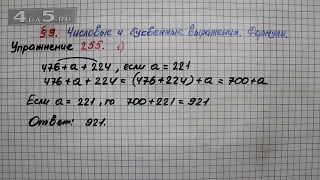 4a5.ru
§9. Числовые и буквенные выражения. Формулы.
Упражнение 255. 1)
476+a+224, если a=221
476+a+224=(476+224)+a=700+a
Если a=221, то 700+221=921
Ответ: 921.